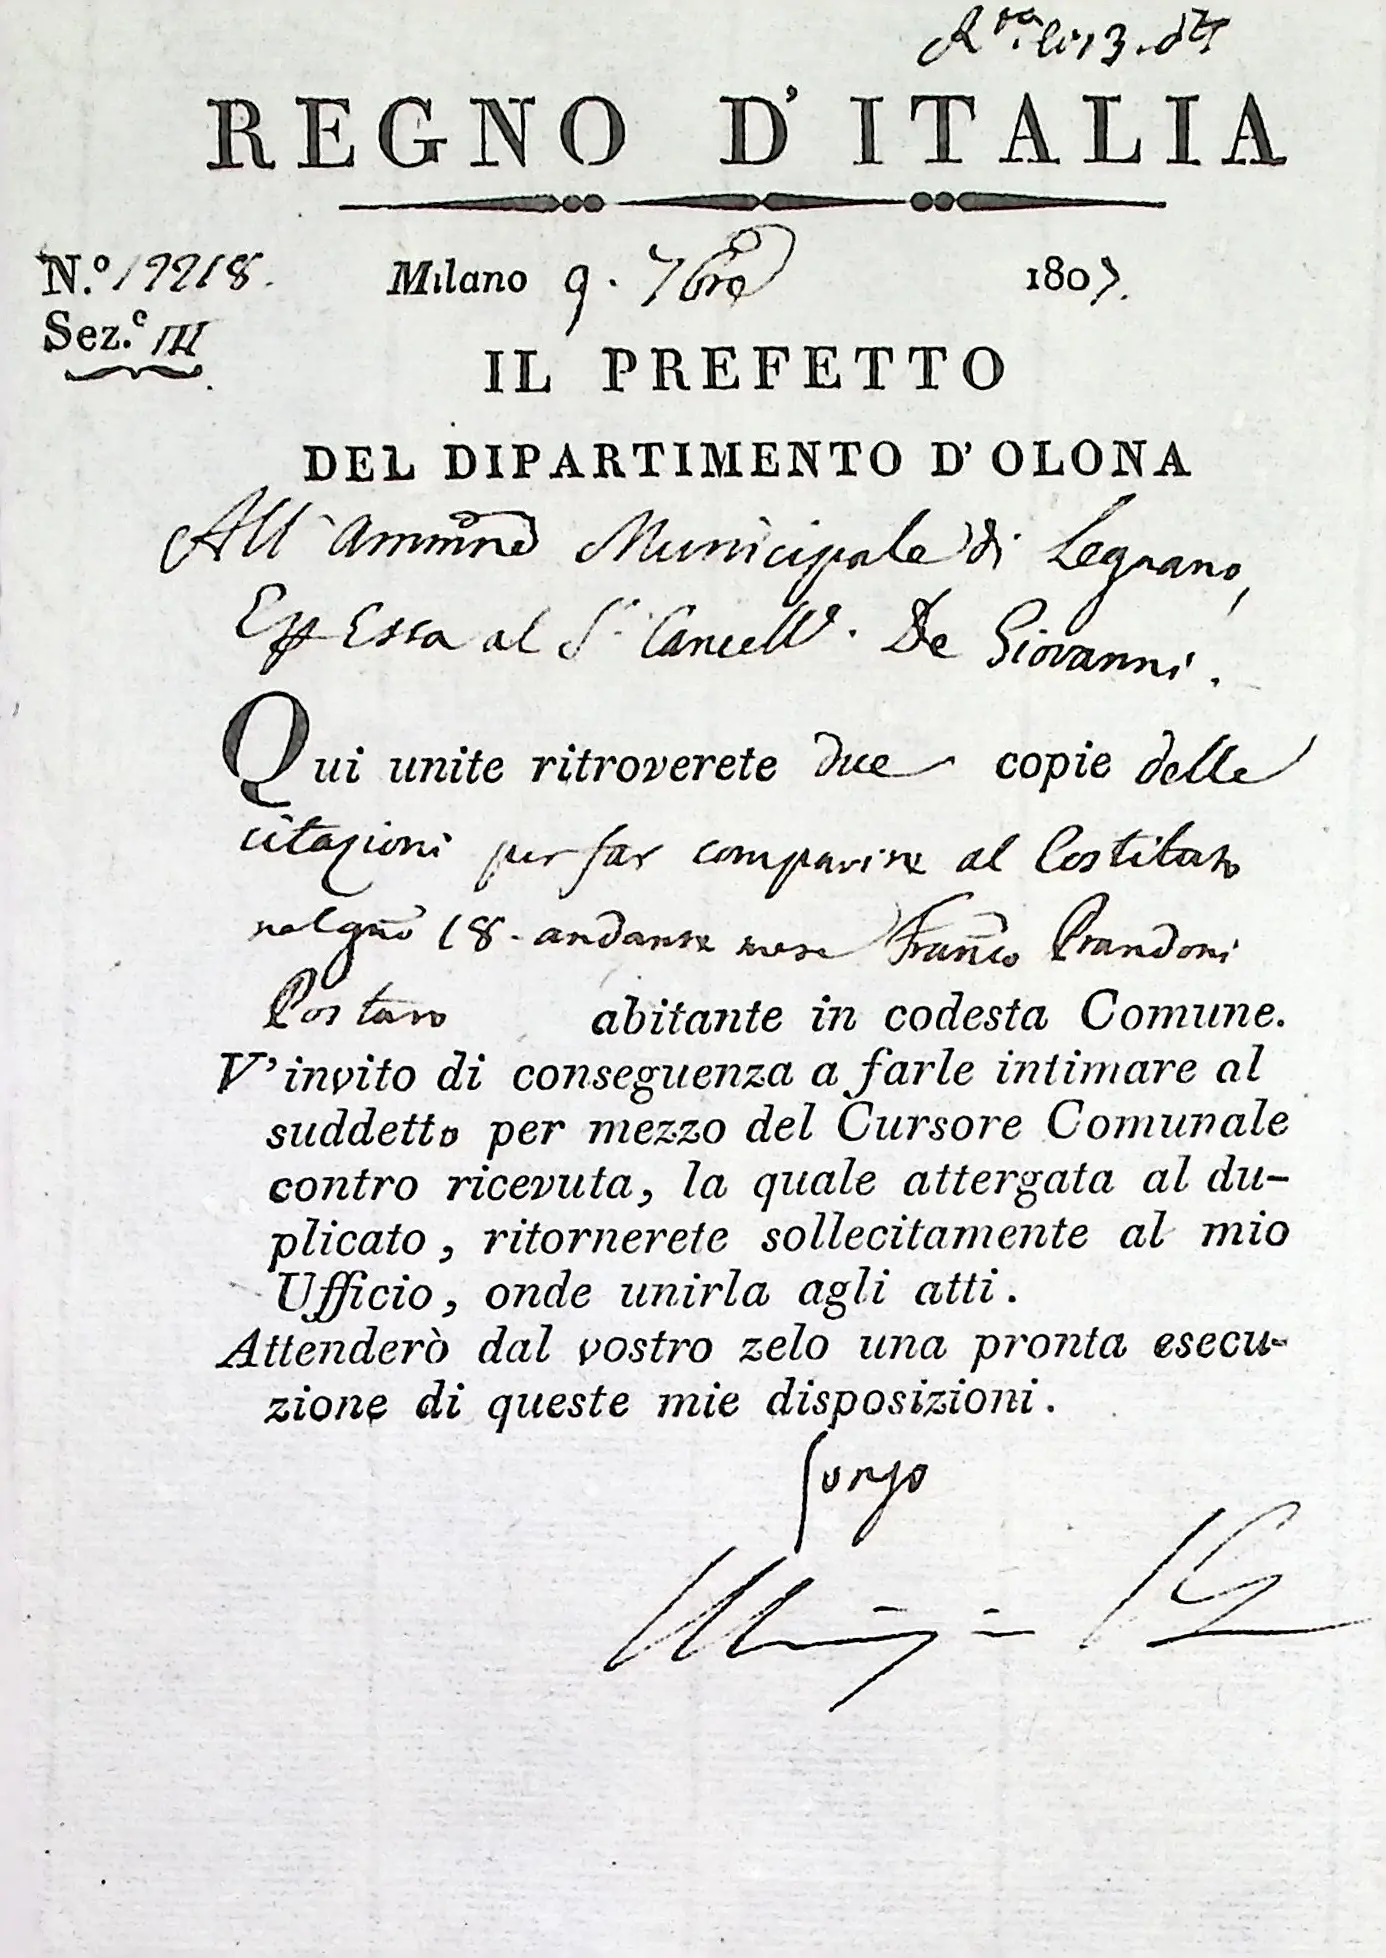 R.ta li 13. d.to
REGNO D'ITALIA
N.° 19218.
Milano 9. 7bre 1807.
Sez.e III
IL PREFETTO
DEL DIPARTIMENTO D'OLONA
All'Ammne Municipale di Legnano,
Epp Essa al S.r Cancell.e De Giovanni.
Qui unite ritroverete due copie delle
citazioni per far comparire al Costituto
nel gno 18. andante mese Franco Prandoni
Postaro abitante in codesta Comune.
V'invito di conseguenza a farle intimare al
suddetto per mezzo del Cursore Comunale
contro ricevuta, la quale attergata al du-
plicato, ritornerete sollecitamente al mio
Ufficio, onde unirla agli atti.
Attenderò dal vostro zelo una pronta esecu-
zione di queste mie disposizioni.